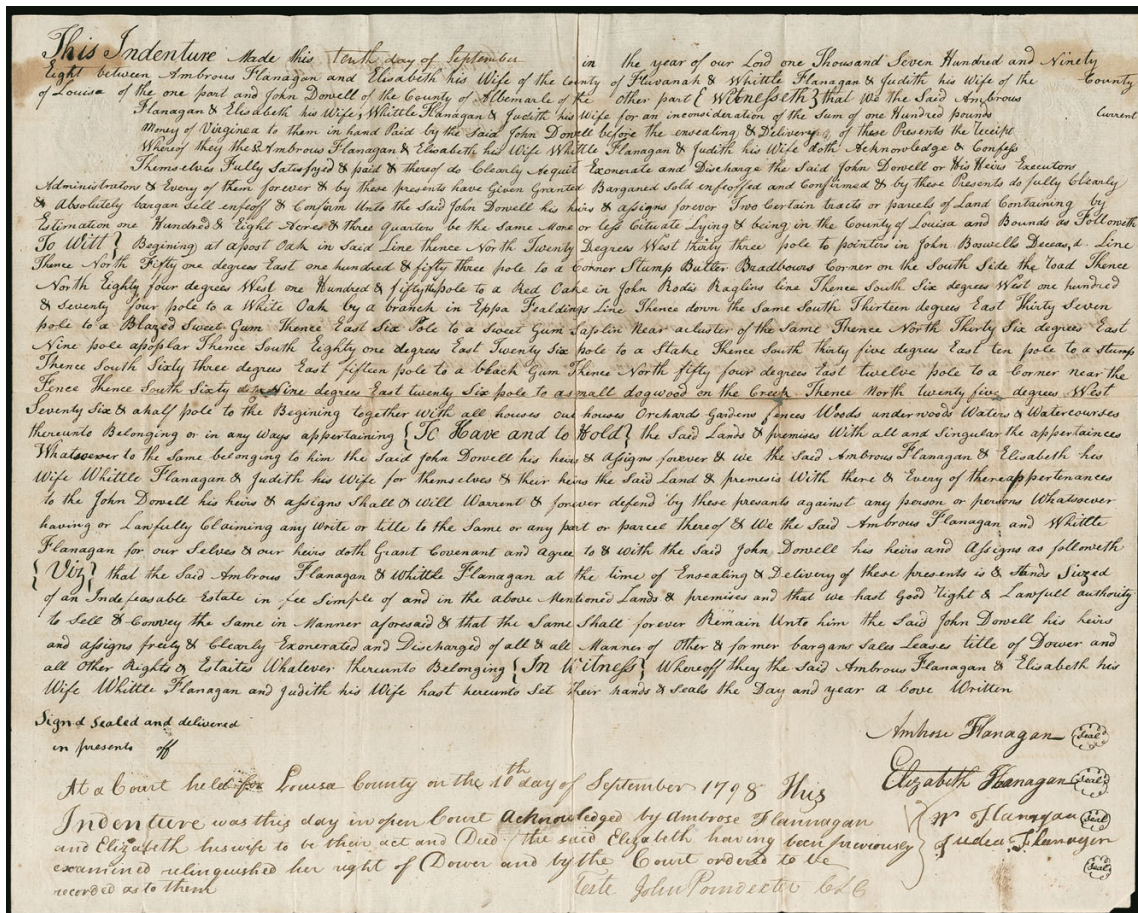 This Indenture Made this tenth day of September in the year of our Lord one Thousand Seven Hundred and Ninety
Eight between Ambrous Flanagan and Elisabeth his Wife of the County of Fluvanah & Whittle Flanagan & Judith his Wife of the County
of Louisa of the one part and John Dowell of the County of Albemarle of the Other part { Witnesseth } that We the Said Ambrous
Flanagan & Elisabeth his Wife, Whittle Flanagan & Judith his Wife for an inconsideration of the Sum of one Hundred pounds Current
Money of Virginea to them in hand Paid by the Said John Dowell before the ensealing & Delivery of these Presents the Receipt
Whereof they the Ambrous Flanagan & Elisabeth his Wife Whittle Flanagan & Judith his Wife doth Acknowledge & Confess
Themselves Fully Satisfyed & paid & thereof do Clearly Aequit Exonerate and Discharge the Said John Dowell or His Heirs Executors
Administrators & Every of them forever & by these presents have Given Granted Barganed Sold enfeoffed and Confirmed & by these Presents do fully Clearly
& Absolutely bargan sell enfeoff & Confirm Unto the Said John Dowell his heirs & assigns forever Two Certain tracts or parcels of Land Containing by
Estimation one Hundred & Eight Acres & three Quarters be the Same More or less Cituate Lying & being in the County of Louisa and Bounds as Followeth
To Witt } Begining at apost Oak in Said Line thence North Twenty Degrees West thirty three pole to pointers in John Boswells Deceas,d. Line
Thence North Fifty one degrees East one hundred & fifty three pole to a Corner Stump Butler Bradbours Corner on the South Side the Road Thence
North Eighty four degrees West one Hundred & fifty pole to a Red Oake in John Rodis Raglins line Thence South Six degrees West one hundred
& seventy four pole to a White Oak by a branch in Eppa Fealdings Line Thence down the Same South Thirteen degrees East Thirty Seven
pole to a Blazed Sweet Gum Thence East Six Pole to a Sweet Gum Saplin Near a cluster of the Same Thence North Thirty Six degrees East
Nine pole apoplar Thence South Eighty one degrees East Twenty Six pole to a Stake Thence South thirty five degrees East ten pole to a Stump
Thence South Sixty three degrees East fifteen pole to a black Gum Thence North fifty four degrees East twelve pole to a Corner near the
Fence Thence South Sixty Nine degrees East twenty Six pole to asmall dogwood on the Creek Thence North twenty five degrees West
Seventy Six & ahalf pole to the Begining together With all houses out houses Orchards Gardens fences Woods underwoods Waters & Watercourses
thereunto Belonging or in any Ways appertaining { To Have and to Hold } the Said Lands & premises With all and Singular the appertainces
Whatsoever to the Same belonging to him the Said John Dowell his heirs & Assigns forever & we the Said Ambrous Flanagan & Elisabeth his
Wife Whittle Flanagan & Judith his Wife for themselves & their heirs the Said Land & premesis With there & Every of thereappertenances
to the John Dowell his heirs & assigns Shall & Will Warrent & forever defend by these presants against any person or persons Whatsoever
having or Lawfully Claiming any Write or title to the Same or any part or parcel thereof & We the Said Ambrous Flanagan and Whittle
Flanagan for our Selves & our heirs doth Grant Covenant and Agree to & with the Said John Dowell his heirs and Assigns as followeth
{ Viz } that the Said Ambrous Flanagan & Whittle Flanagan at the time of Ensealing & Delivery of these presents is & Stands Siezed
of an Indefeasable Estate in fee Simple of and in the above Mentioned Lands & premises and that we hast Good Right & Lawfull authority
to Sell & Convey the Same in Manner aforesaid & that the Same Shall forever Remain Unto him the Said John Dowell his heirs
and assigns freity & Clearly Exonerated and Discharged of all & all Manner of Other & former bargans Sales Leases title of Dower and
all Other Rights & Estaites Whatever thereunto Belonging { In Witness } Whereoff they the Said Ambrous Flanagan & Elisabeth his
Wife Whittle Flanagan and Judith his Wife hast hereunto Set their hands & Seals the Day and year a bove Written
Signd Sealed and delivered
in presents off
Ambrose Flanagan Seal
Elizabeth Flanagan Seal
W Flanagan Seal
Judea Flanagan Seal
At a Court held for Louisa County on the 10th day of September 1798 This
Indenture was this day in open Court Acknowledged by Ambrose Flannagan
and Elizabeth his wife to be their act and Deed (the said Elizabeth having been previously
examined relinquished her right of Dower and by the Court ordered to be
recorded as to them
Teste John Poindexter CLC